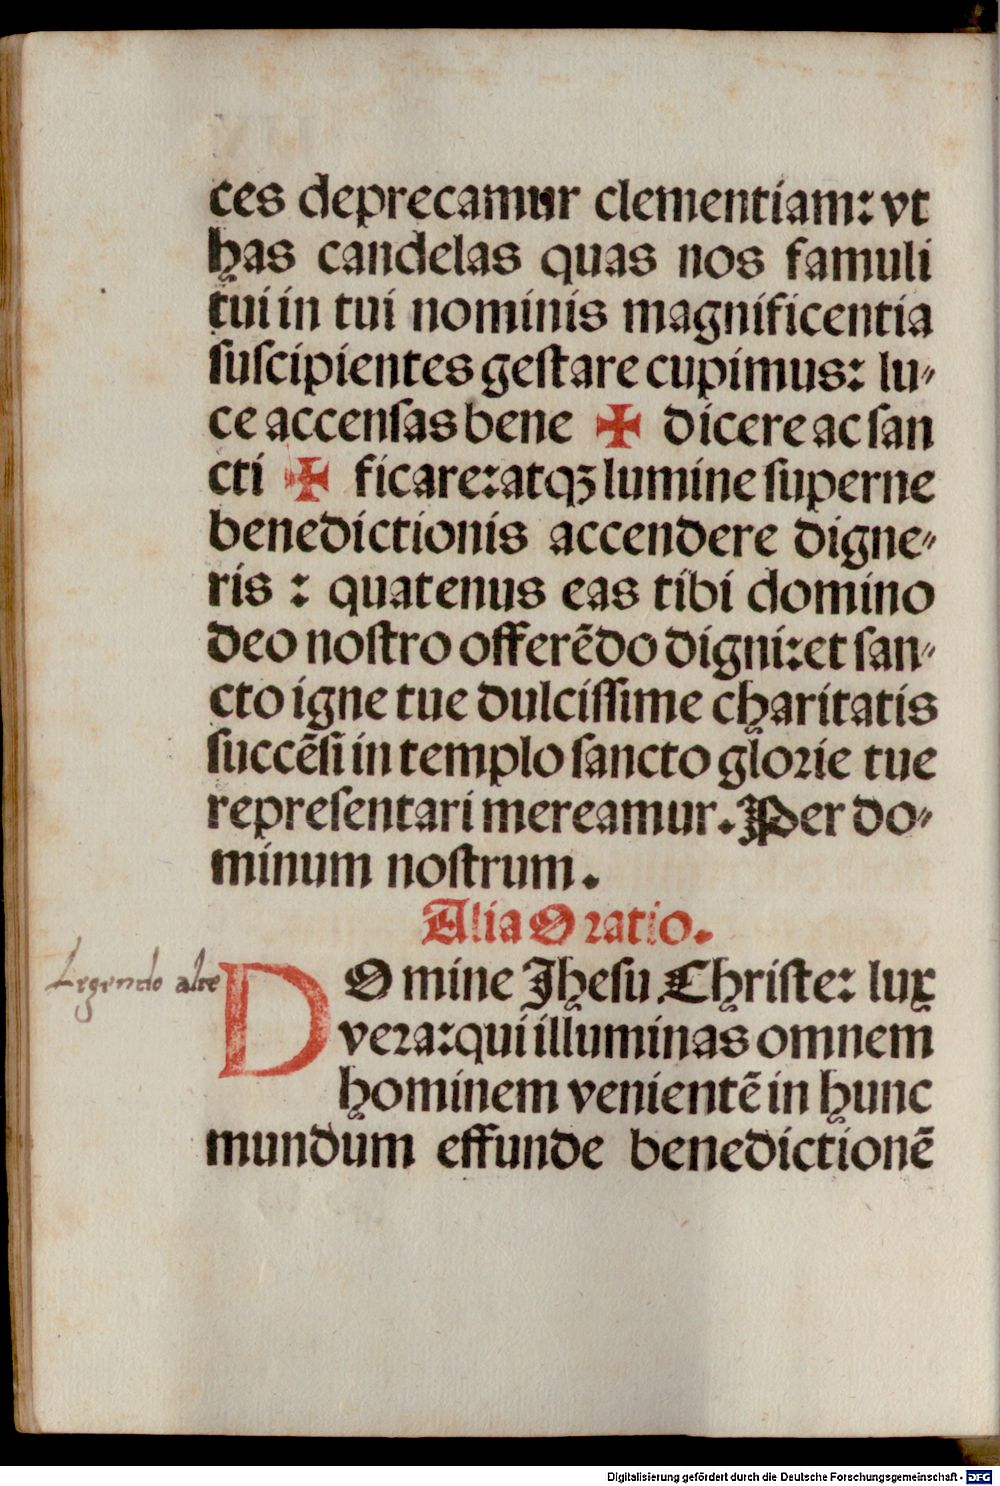 ces deprecamur clementiam: vt
has candelas quas nos famuli
tui in tui nominis magnificentia
ſuſcipientes geſtare cupimus: lu⸗
ce accenſas bene ✠ dicere ac ſan
cti ✠ ficare: atqꝫ lumine ſuperne
benedictionis accendere digne⸗
ris : quatenus eas tibi domino
deo noſtro offerẽdo digni: et ſan⸗
cto igne tue dulciſſime charitatis
ſuccẽſi in templo ſancto gloꝛie tue
repreſentari mereamur. Per do⸗
minum noſtrum.
Alia Oꝛatio.
Legendo alte
DOmine Jheſu Chriſte: lux
veꝛa: qui illuminas omnem
hominem venientẽ in hunc
mundum effunde benedictionẽ
Digitalisierung gefördert durch die Deutsche Forschungsgemeinschaft - DFG